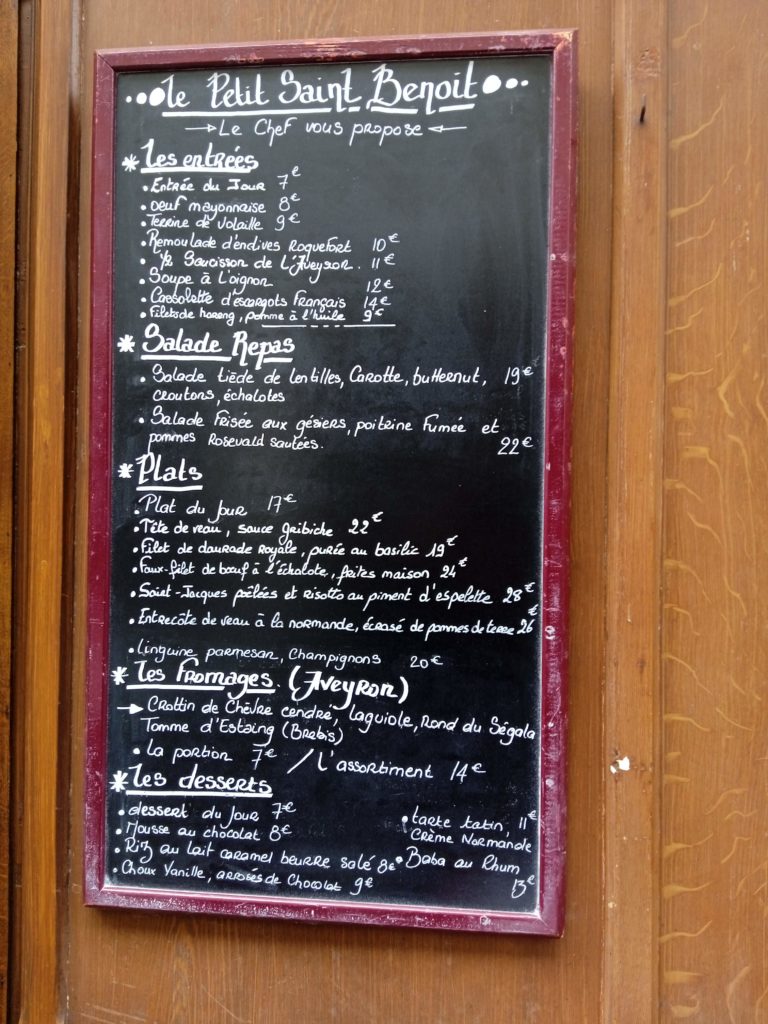 Le Petit Saint Benoit
Le Chef vous propose
* Les entrées
• Entrée du Jour 7€
• Oeuf mayonnaise 8€
• Terrine de Volaille 9€
• Remoulade d'endives Roquefort 10€
• 1/2 Saucisson de l'Aveyron. 11€
• Soupe à l'oignon 12€
• Cassolette d'escargots Français 14€
• Filets de hareng, pomme à l'huile 9€
* Salade Repas
• Salade tiède de lentilles, Carotte, butternut, 19€
croutons, échalotes
• Salade Frisée aux gésiers, poitrine Fumée et
pommes Rosevald sautées. 22€
* Plats
• Plat du Jour 17€
• Tête de veau, sauce gribiche 22€
• Filet de daurade Royale, purée au basilic 19€
• Faux-filet de bœuf à l'échalote, frites maison 24€
• Saint-Jacques poêlées et Risotto au piment d'espelette 28€
• Entrecôte de veau à la normande, écrasé de pommes de terre 26€
• Linguine parmesan, Champignons 20€
* Les fromages. (Aveyron)
→ Crottin de Chèvre cendré, Laguiole, Rond du Ségala
Tomme d'Estaing (Brebis)
• La portion 7€ / L'assortiment 14€
* Les desserts
• dessert du Jour 7€
• Mousse au chocolat 8€
• Riz au lait caramel beurre salé 8€
• Choux Vanille, arrosés de Chocolat 9€
• tarte tatin, 11€
Crème Normande
• Baba au Rhum
13€